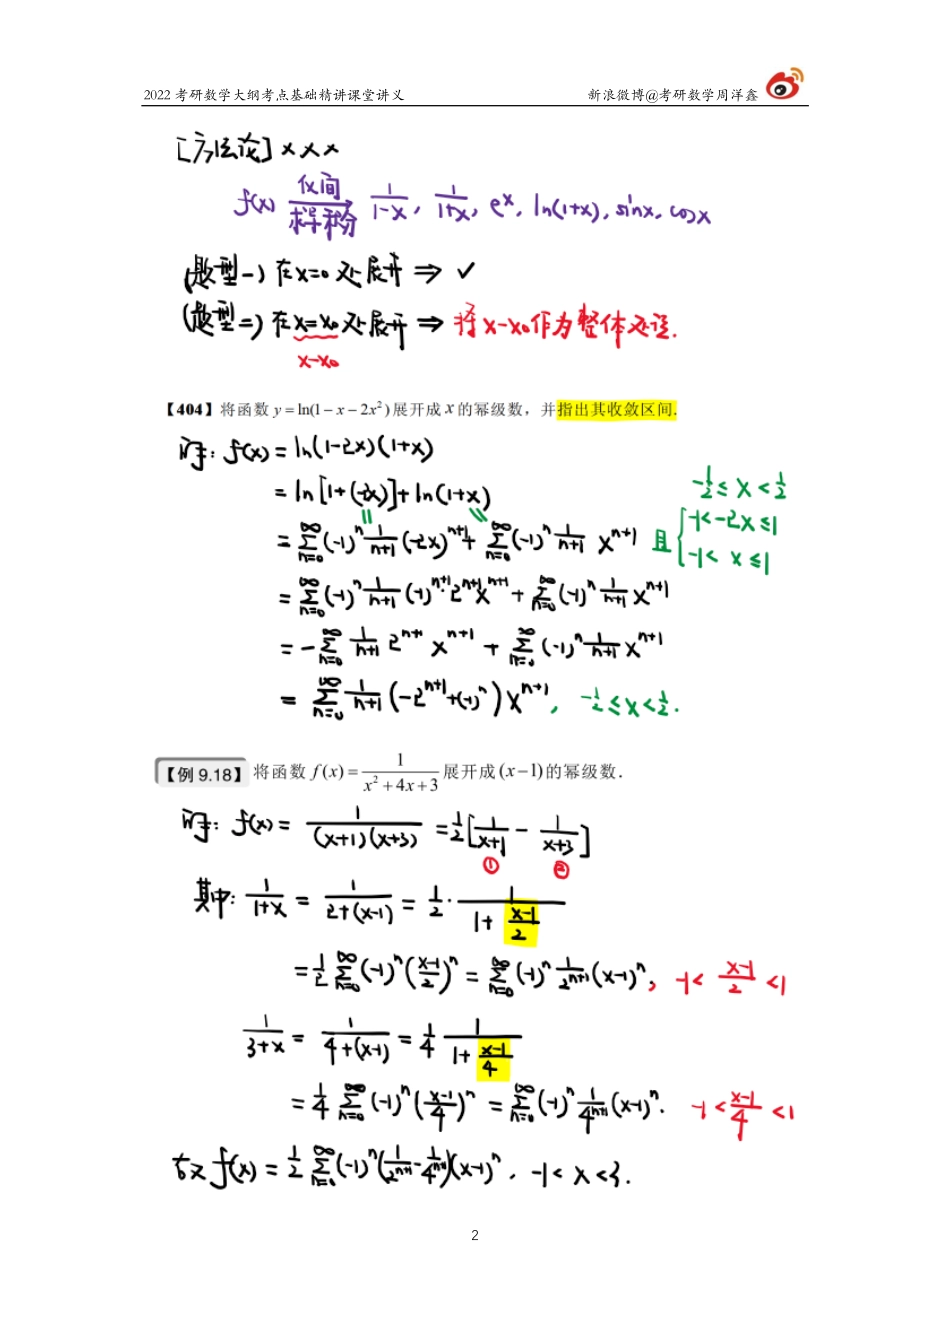 2022 考研数学大纲考点基础精讲课堂讲义 新浪微博@考研数学周洋鑫
[方法论] ×××
f(x) 仅间/样积 1/(1-x), 1/(1+x), e^x, ln(1+x), sinx, cosx
(题型一) 在x=0处展开 ⇒ ✓
(题型二) 在x=x₀处展开 ⇒ 将x-x₀作为整体处理.
x-x₀
【404】将函数 y = ln(1 − x − 2x²) 展开成 x 的幂级数，并指出其收敛区间.
解: f(x) = ln(1-2x)(1+x)
= ln[1+(-2x)] + ln(1+x)
-1/2 ≤ x < 1/2
= ∑_{n=0}^{∞} (-1)^n 1/(n+1) (-2x)^{n+1} + ∑_{n=0}^{∞} (-1)^n 1/(n+1) x^{n+1} 且 { -1< -2x ≤1
-1< x ≤1
= ∑_{n=0}^{∞} (-1)^n 1/(n+1) (-1)^{n+1}·2^{n+1} x^{n+1} + ∑_{n=0}^{∞} (-1)^n 1/(n+1) x^{n+1}
= -∑_{n=0}^{∞} 1/(n+1) 2^{n+1} x^{n+1} + ∑_{n=0}^{∞} (-1)^n 1/(n+1) x^{n+1}
= ∑_{n=0}^{∞} 1/(n+1) (-2^{n+1}+(-1)^n) x^{n+1}, -1/2 ≤ x < 1/2.
【例 9.18】 将函数 f(x) = 1/(x²+4x+3) 展开成 (x−1) 的幂级数.
解: f(x) = 1/((x+1)(x+3)) = 1/2 [1/(x+1) - 1/(x+3)]
① ②
其中: 1/(1+x) = 1/(2+(x-1)) = 1/2 · 1/(1+ (x-1)/2)
= 1/2 ∑_{n=0}^{∞} (-1)^n ((x-1)/2)^n = ∑_{n=0}^{∞} (-1)^n 1/2^{n+1} (x-1)^n, -1 < (x-1)/2 < 1
1/(3+x) = 1/(4+(x-1)) = 1/4 1/(1+ (x-1)/4)
= 1/4 ∑_{n=0}^{∞} (-1)^n ((x-1)/4)^n = ∑_{n=0}^{∞} (-1)^n 1/4^{n+1} (x-1)^n. -1 < (x-1)/4 < 1
故 f(x) = 1/2 ∑_{n=0}^{∞} (-1)^n (1/2^{n+1} - 1/4^{n+1})(x-1)^n, -1< x <3.
2